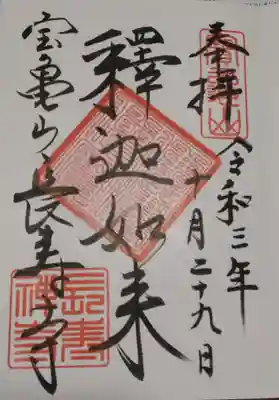 奉拝
令和三年
十月二十九日
釋迦如来
宝亀山長寿寺